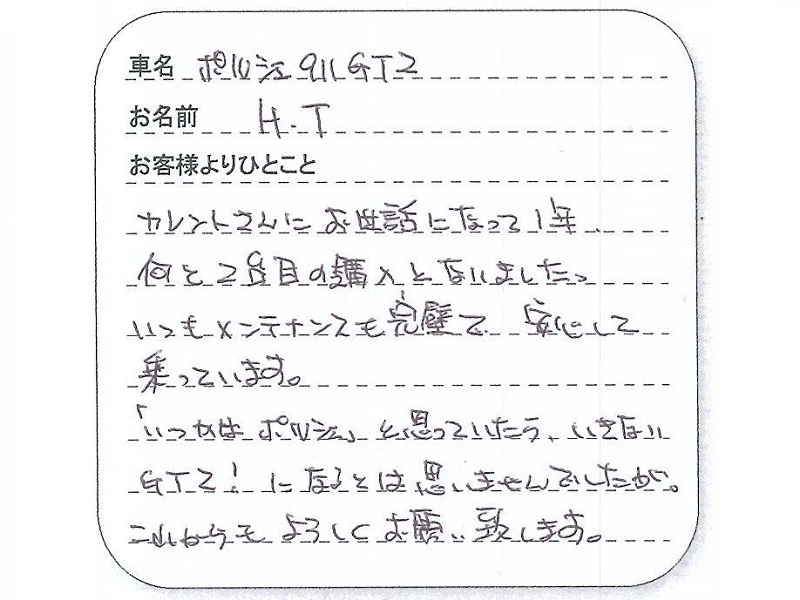 車名 ポルシェ 911 GT2
お名前 H.T
お客様よりひとこと
カレントさんにお世話になって1年、
何と2台目の購入となりました。
いつもメンテナンスも完璧で 安心して
乗っています。
「いつかはポルシェ」と思っていたら、いきなり
GT2! になるとは思いませんでしたが。
これからもよろしくお願い致します。